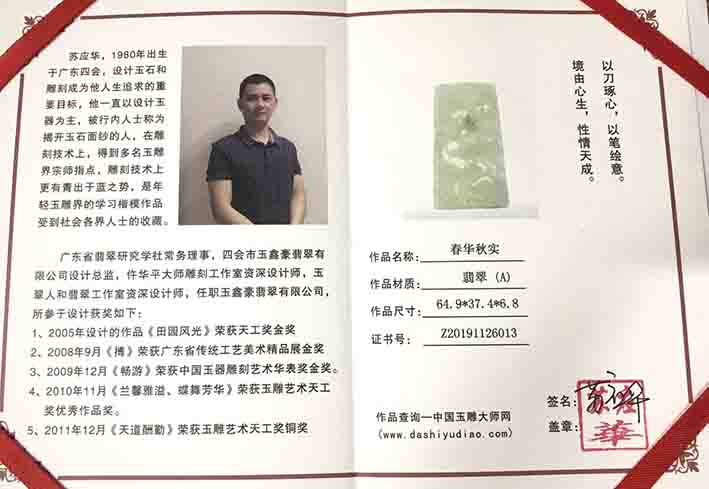 苏应华，1980年出生
于广东四会，设计玉石和
雕刻成为他人生追求的重
要目标，他一直以设计玉
器为主，被行内人士称为
揭开玉石面纱的人，在雕
刻技术上，得到多名玉雕
界宗师指点，雕刻技术上
更有青出于蓝之势，是年
轻玉雕界的学习楷模作品
受到社会各界人士的收藏。
广东省翡翠研究学社常务理事，四会市玉鑫豪翡翠有
限公司设计总监，仵华平大师雕刻工作室资深设计师，玉
翠人和翡翠工作室资深设计师，任职玉鑫豪翡翠有限公司，
所参于设计获奖如下：
1、2005年设计的作品《田园风光》荣获天工奖金奖
2、2008年9月《博》荣获广东省传统工艺美术精品展金奖
3、2009年12月《畅游》荣获中国玉器雕刻艺术华表奖金奖。
4、2010年11月《兰馨雅溢、蝶舞芳华》荣获玉雕艺术天工
奖优秀作品奖。
5、2011年12月《天道酬勤》荣获玉雕艺术天工奖铜奖
以刀琢心，以笔绘意。
境由心生，性情天成。
作品名称：春华秋实
作品材质：翡翠（A）
作品尺寸：64.9*37.4*6.8
证书号：Z20191126013
签名：苏应华
盖章：
作品查询—中国玉雕大师网
(www.dashiyudiao.com)